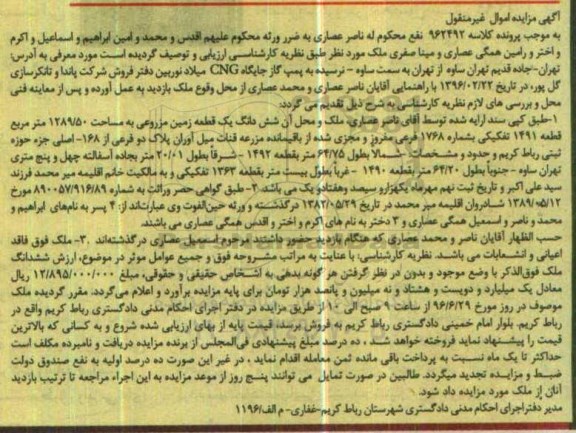 آگهی مزایده اموال غیرمنقول
به موجب پرونده کلاسه ۹۶۲۴۹۲ نفع محکوم له ناصر عصاری به ضرر ورثه محکوم علیهم اقدس و محمد و امین ابراهیم و اسماعیل و اکرم
و اختر و رامین همگی عصاری و مینا صفری ملک مورد نظر طبق نظریه کارشناسی ارزیابی و توصیف گردیده است مورد معرفی به آدرس:
تهران-جاده قدیم تهران ساوه از تهران به سمت ساوه - نرسیده به پمپ گاز جایگاه CNG میلاد نوربین دفتر فروش شرکت پاندا و تانکرسازی
گل پور، در تاریخ ۱۳۹۶/۰۲/۲۲ با راهنمایی آقایان ناصر عصاری و محمد عصاری از محل وقوع ملک بازدید به عمل آورده و پس از معاینه فنی
محل و بررسی های لازم نظریه کارشناسی به شرح ذیل تقدیم می گردد:
۱-طبق کپی سند ارایه شده توسط آقای ناصر عصاری، ملک و محل آن شش دانگ یک قطعه زمین مزروعی به مساحت ۱۲۸۹/۵۰ متر مربع
قطعه ۱۴۹۱ تفکیکی بشماره ۱۷۶۸ فرعی مفروز و مجزی شده از باقیمانده مزرعه قنات میل آوران پلاک دو فرعی از ۱۶۸- اصلی جزء حوزه
ثبتی رباط کریم و حدود و مشخصات -شمالاً بطول ۶۴/۷۵ متر بقطعه ۱۴۹۲ - شرقاً بطول ۲۰/۰۱ متر بجاده آسفالته چهل و پنج متری
تهران ساوه - جنوباً بطول ۶۴/۲۰ متر بقطعه ۱۴۹۰ - غرباً بطول بیست متر بقطعه ۱۳۶۳ تفکیکی و به مالکیت خانم اقلیمه میر محمد فرزند
سید علی اکبر و تاریخ ثبت نهم مهرماه یکهزارو سیصد وهفتادو یک می باشد، ۲- طبق گواهی حصر وراثت به شماره ۸۹۰۰۵۷/۹۱۶/۸۹ مورخ
۱۳۸۹/۰۵/۱۲ شادروان اقلیمه میر محمد در تاریخ ۱۳۸۲/۰۵/۲۹ درگذشته و ورثه حین‌الفوت وی عبارت‌اند از: ۴ پسر به نام‌های ابراهیم و
محمد و ناصر و اسمعیل همگی عصاری و ۳ دختر به نام های اکرم و اختر و اقدس همگی عصاری می باشند.
حسب الظهار آقایان ناصر و محمد عصاری که هنگام بازدید حضور داشتند مرحوم اسمعیل عصاری درگذشته‌اند .۳- ملک فوق فاقد
اعیانی و انشعابات می باشد. نظریه کارشناسی: با عنایت به مراتب مشروحه فوق و جمیع عوامل موثر در موضوع، ارزش ششدانگ
ملک فوق‌الذکر با وضع موجود و بدون در نظر گرفتن هر گونه بدهی به اشخاص حقیقی و حقوقی، مبلغ ۱۲/۸۹۵/۰۰۰/۰۰۰ ریال
معادل یک میلیارد و دویست و هشتاد و نه میلیون و پانصد هزار تومان برای پایه مزایده برآورد و اعلام می‌گردد. مقرر گردیده ملک
موصوف در روز مورخ ۹۶/۶/۲۹ از ساعت ۹ صبح الی ۱۰ از طریق مزایده در دفتر اجرای احکام مدنی دادگستری رباط کریم واقع در
رباط کریم. بلوار امام خمینی دادگستری رباط کریم به فروش برسد، قیمت پایه از بهای ارزیابی شده شروع و به کسانی که بالاترین
قیمت را پیشنهاد نماید فروخته خواهد شد ، ده درصد مبلغ پیشنهادی فی‌المجلس از برنده مزایده دریافت و نامبرده مکلف است
حداکثر تا یک ماه نسبت به پرداخت باقی مانده ثمن معامله اقدام نماید ، در غیر این صورت ده درصد اولیه به نفع صندوق دولت
ضبط و مزایده تجدید میگردد. طالبین در صورت تمایل می توانند پنج روز از موعد مزایده به این اجراء مراجعه تا ترتیب بازدید
آنان از ملک مورد مزایده داد شود.
مدیر دفتراجرای احکام مدنی دادگستری شهرستان رباط کریم-غفاری- م الف/۱۱۹۶